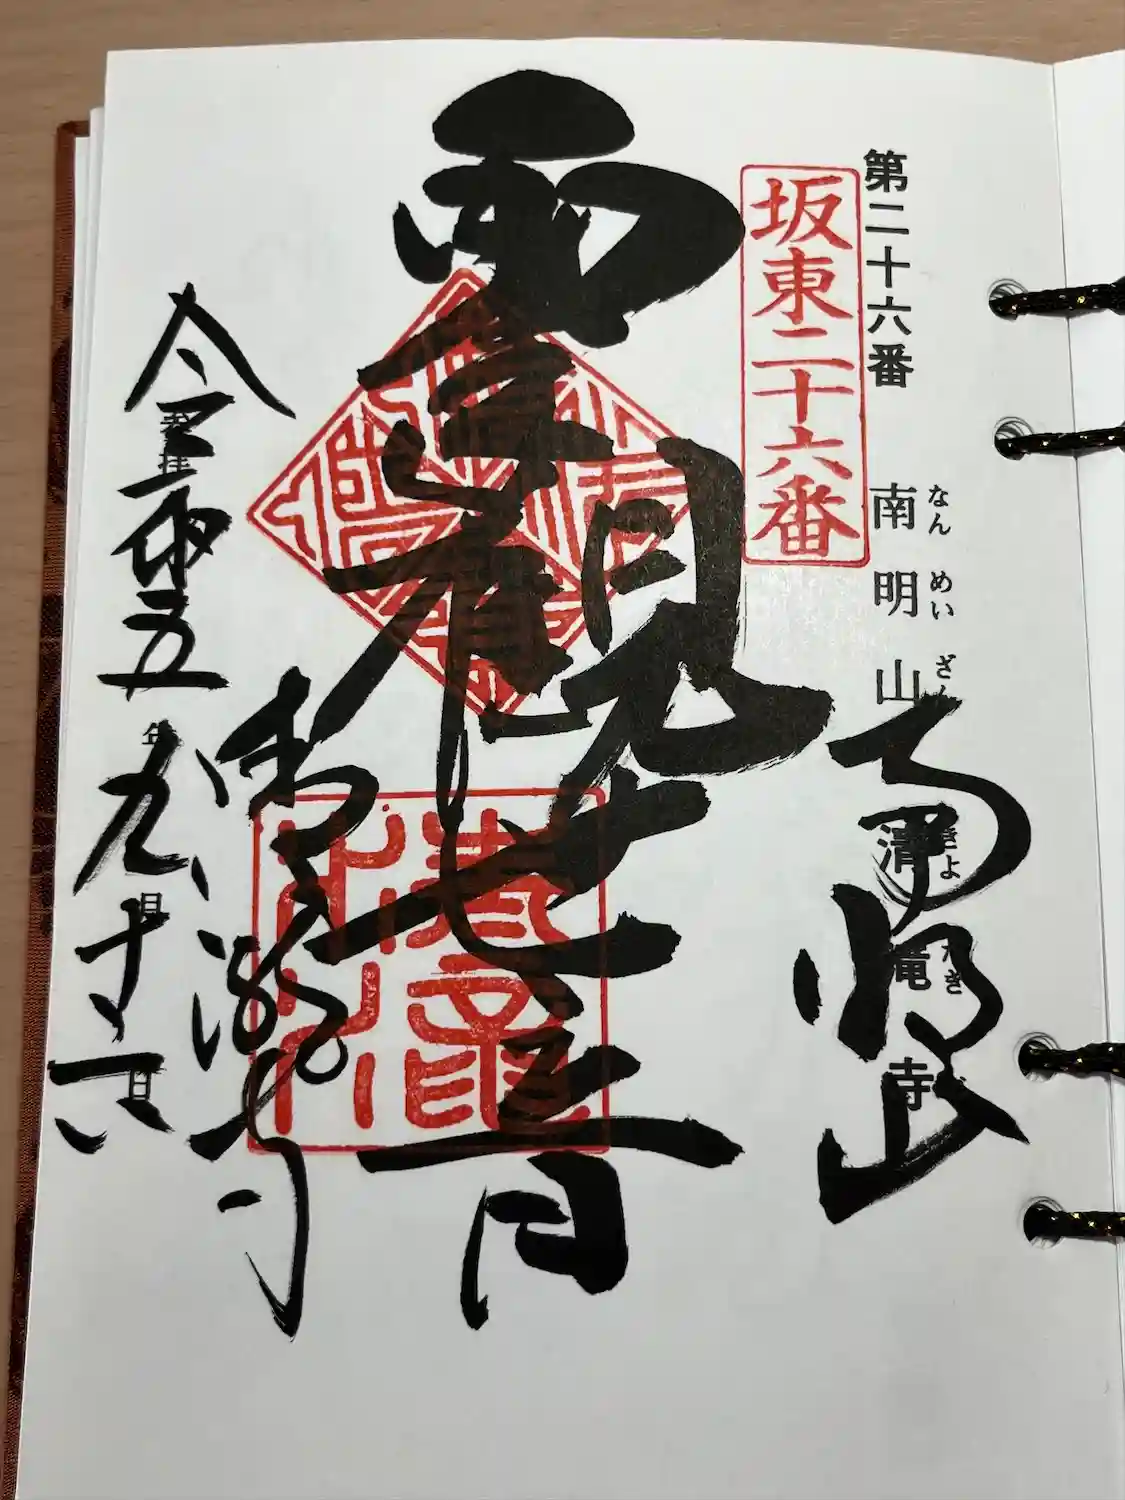 第二十六番 南明山 清滝寺
なん めい ざん きよ たき
坂東二十六番
南明山
聖観世音
清瀧寺
奉拝
令和五年九月十六日